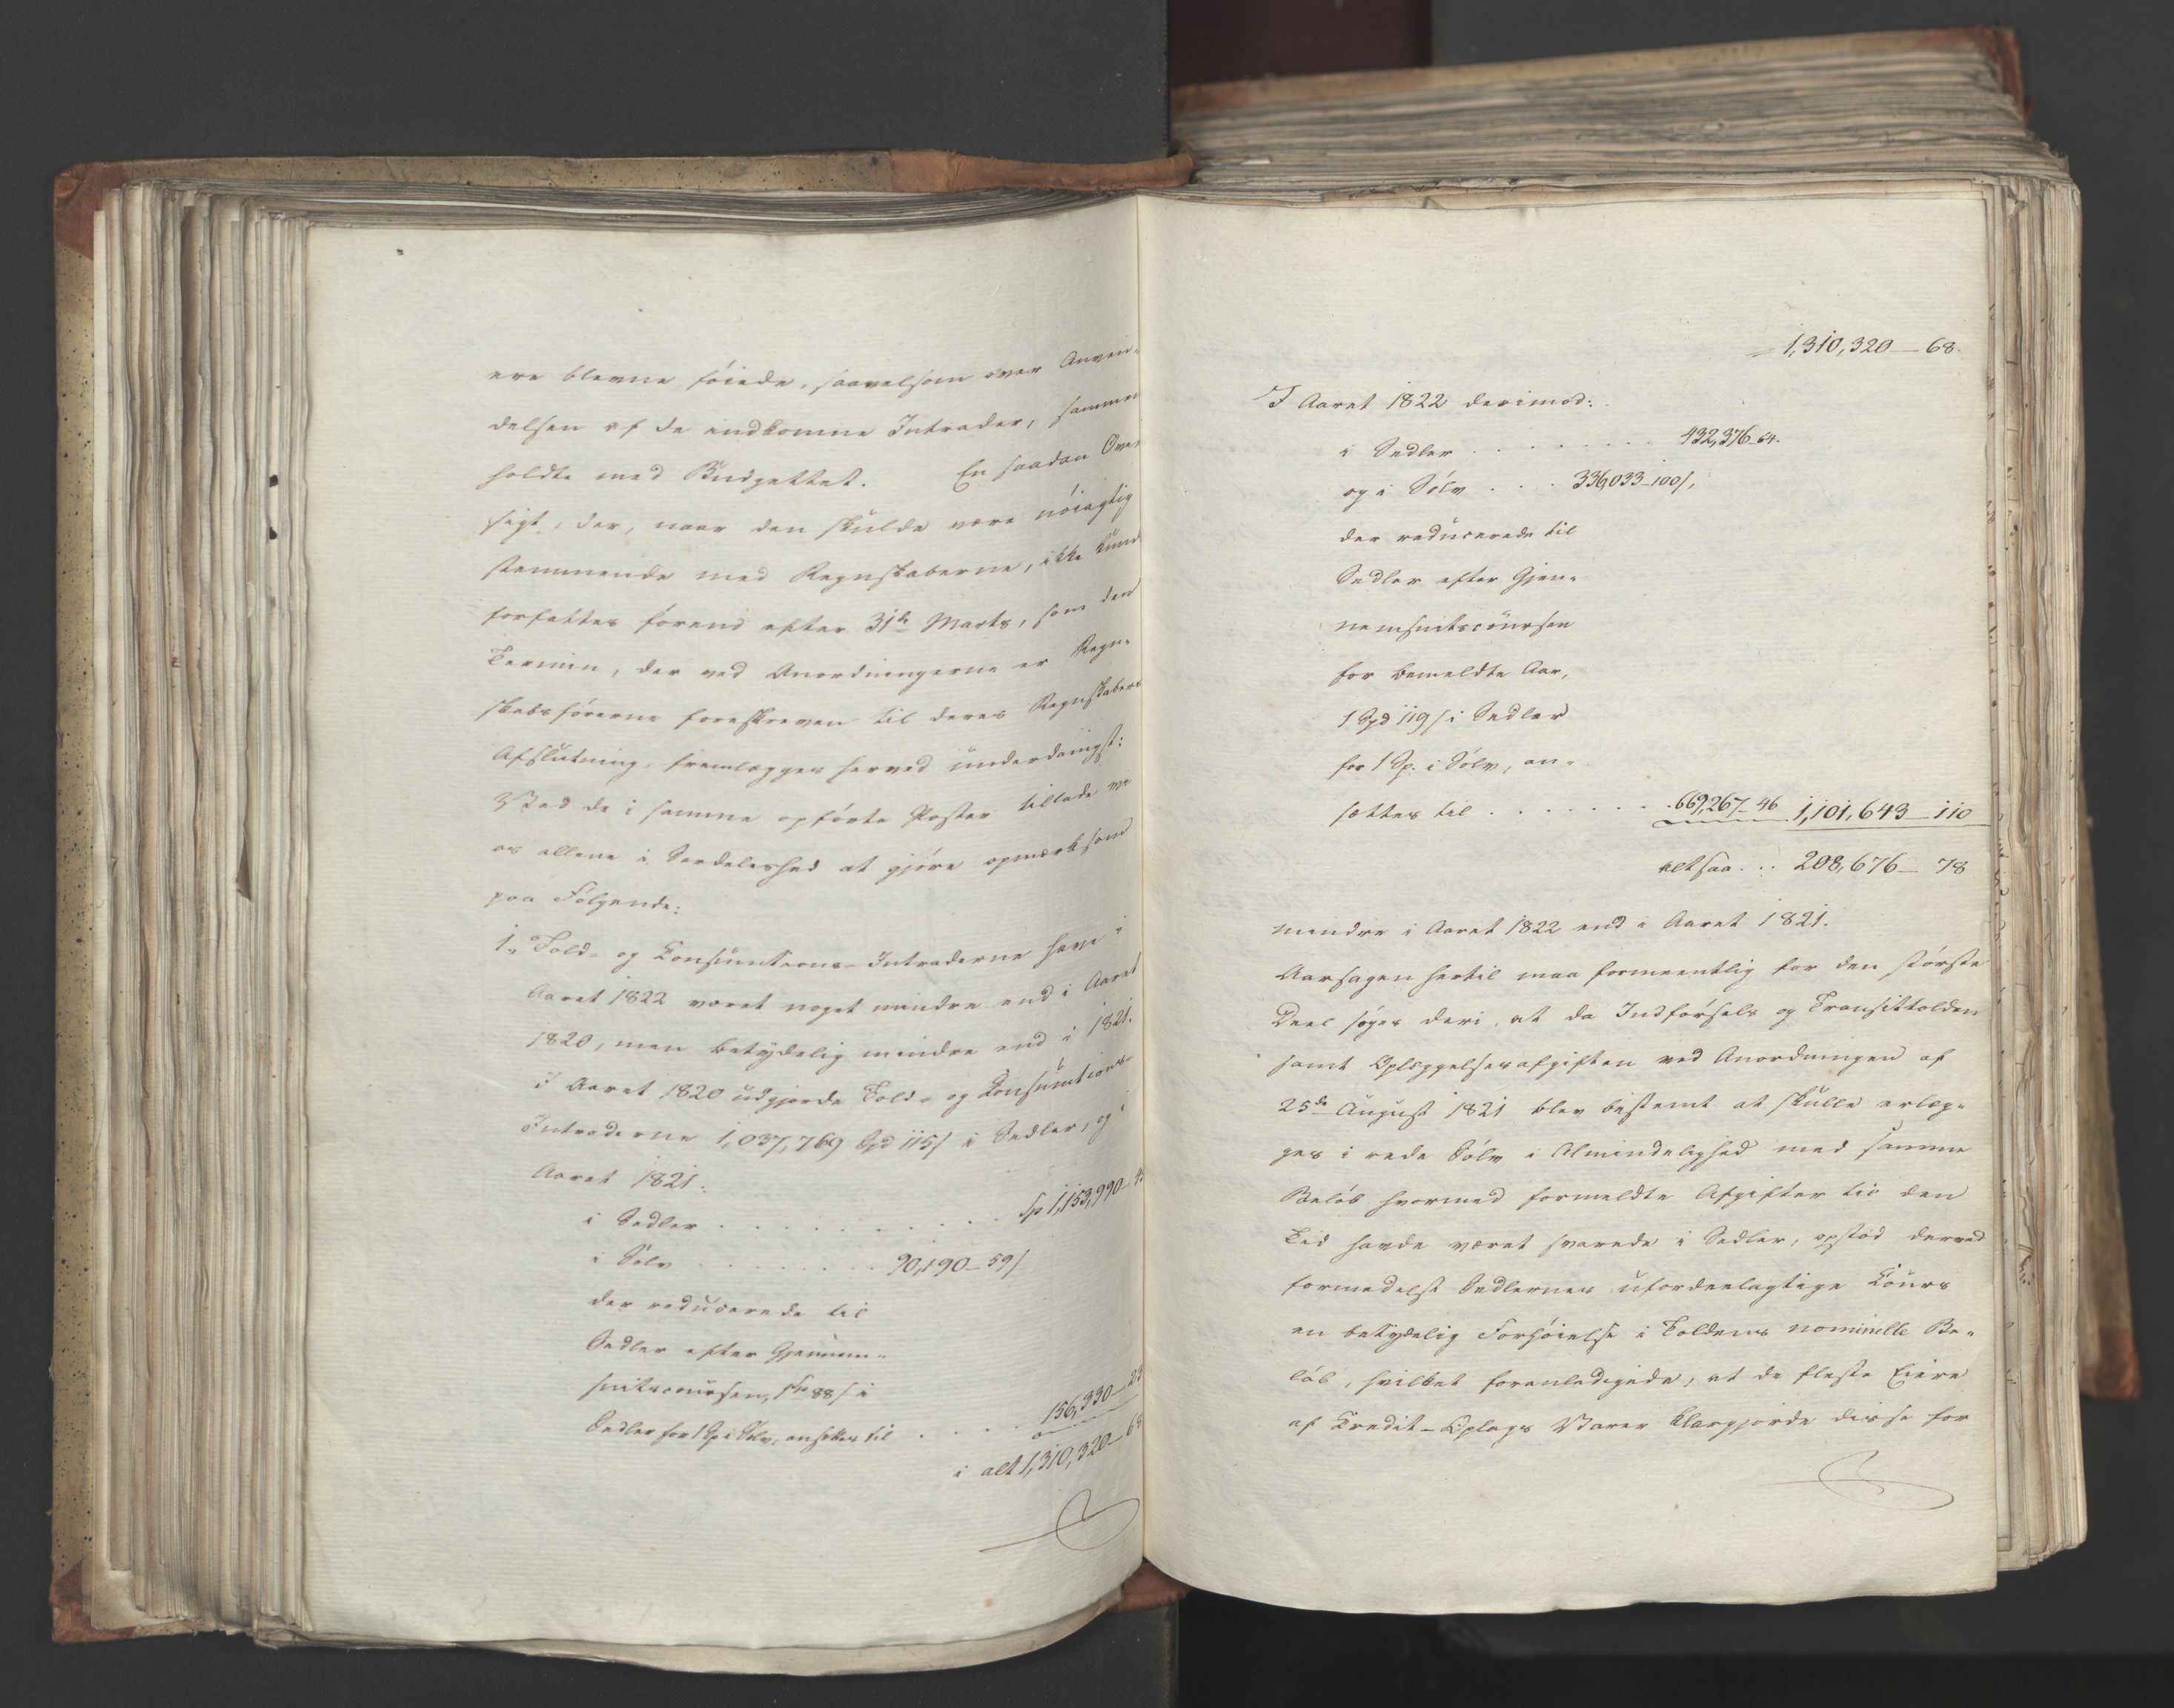 ere blevne föiede, saavelsom over Anven-
delsen af de indkomne Intrader, sammen
holdte med Budgettet. En saadan Over
sigt, der, naar den skulde være nöiagtig
stemmende med Regnskaberne, ikke kund
forfattes förend efter 31te Marts, som den
Termin, der ved Anordningerne er Regn-
skabsförerne foreskreven til deres Regnskabers
Afslutning, fremlægges herved underdanigst:
Ved de i samme opförte Poster tillade vi
os allene i Særdeleshed at gjöre opmærksom
paa Fölgende:
1, Told- og Consumtions-Intraderne have i
Aaret 1822 været noget mindre end i Aaret
1820, men betydelig mindre end i 1821.
I Aaret 1820 udgjorde Told- og Consumtions-
Intraderne 1,037,769 Spd 115 s i Sedler, og i
Aaret 1821:
i Sedler . . . . . . . . . Sp 1,153,990 - 4
i Sölv . . . . . . . 90,190 - 59 s
der reducerede til
Sedler efter Gjennem-
snitscoursen, 1 Sp 88 s i
Sedler for 1 Sp i Sölv, ansættes til . . . . 156,330 - 23
i alt 1,310,320 - 68
1,310,320 - 68.
I Aaret 1822 derimod:
i Sedler . . . . . . . 432,376 - 64.
og i Sölv . . . 336,033 - 100 s,
der reducerede til
Sedler efter Gjen-
nemsnitscoursen
for bemeldte Aar,
1 Spd 119 s i Sedler
for 1 Sp. i Sölv, an-
sættes til . . . . . . . 669,267 - 46 1,101,643 - 110
altsaa . . . 208,676 - 78
mindre i Aaret 1822 end i Aaret 1821.
Aarsagen hertil maa formeentlig for den störste
Deel söges deri, at da Indförsels og Transittolden
samt Oplæggelsesafgiften ved Anordningen af
25de August 1821 blev bestemt at skulle erlæg-
ges i rede Sölv i Almindelighed med samme
Belöb hvormed formeldte Afgifter til den
Tid havde været svarede i Sedler, opstod derved
formedelst Sedlernes ufordeelagtige Cours
en betydelig Forhöielse i Toldens nominelle Be-
löb, hvilket foranledigede, at de fleste Eiere
af Credit-Oplags Varer klargjorde disse for